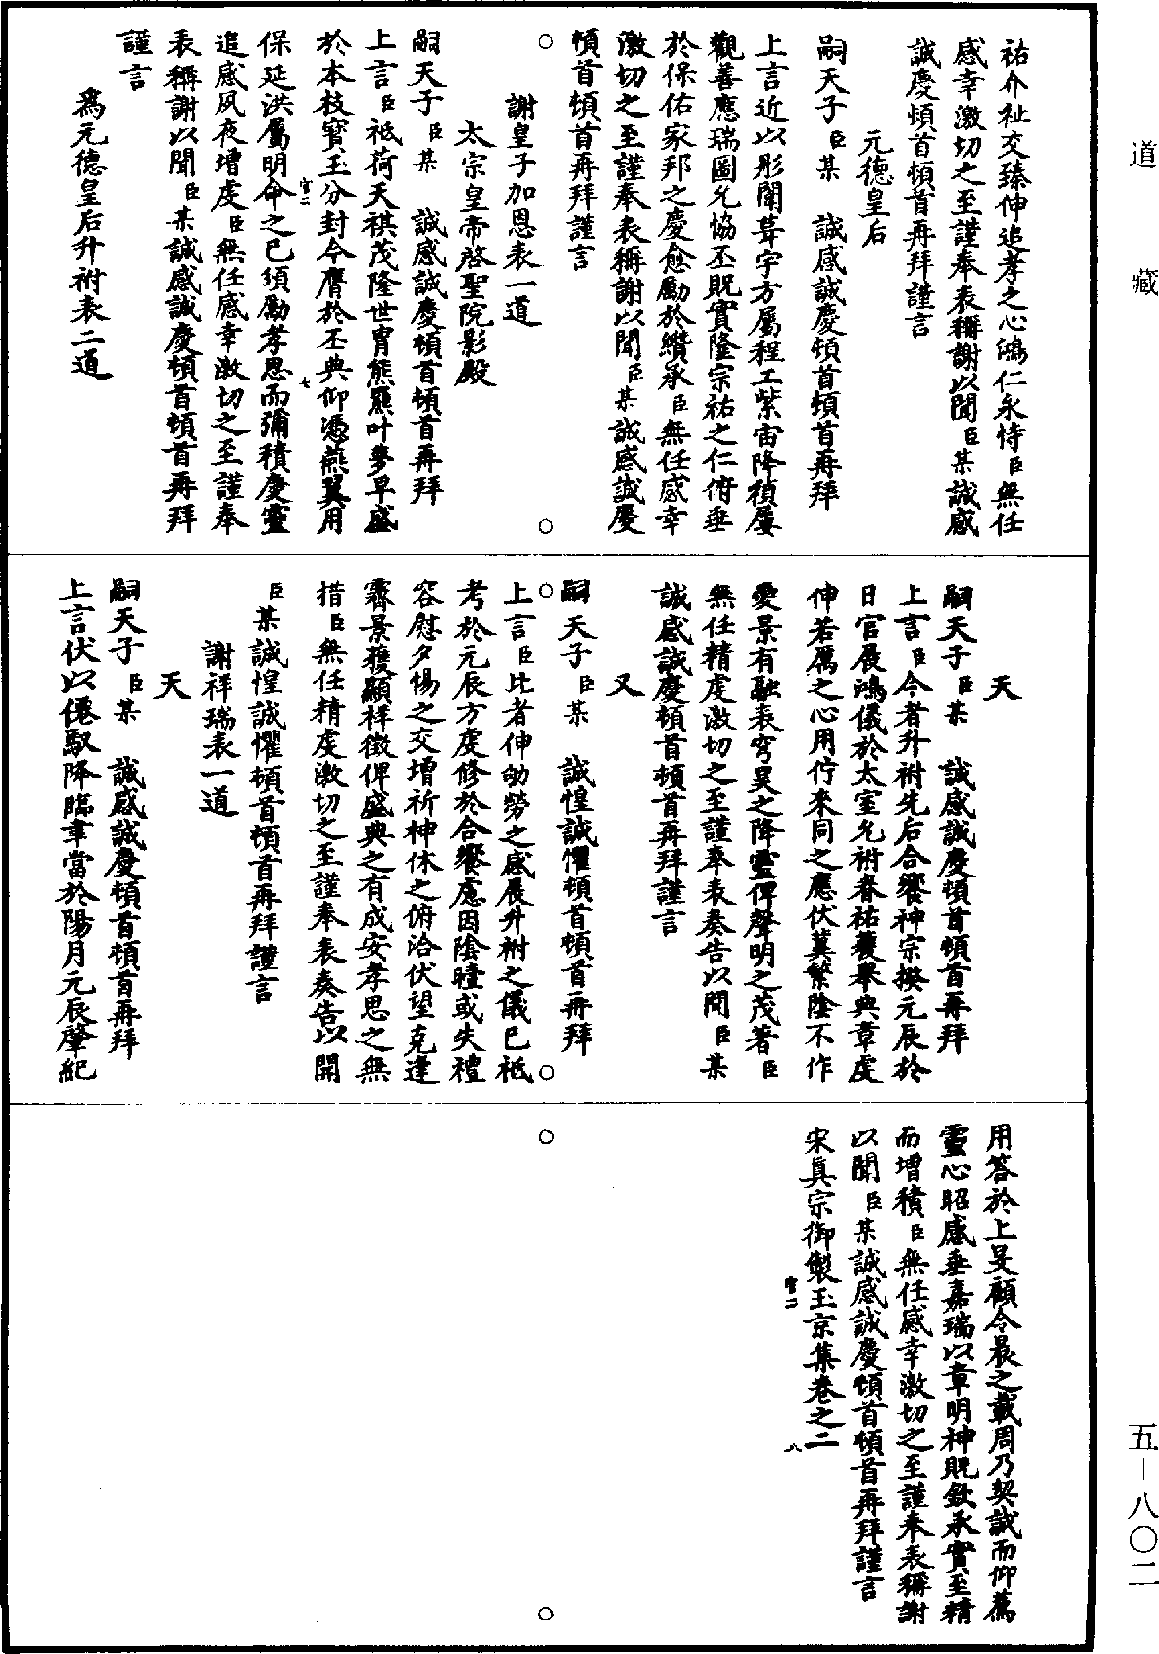 道藏
五—八〇二
祐介祉交臻伸追孝之心鴻仁永恃臣無任
感幸激切之至謹奉表稱謝以聞臣某誠感
誠慶頓首頓首再拜謹言
元德皇后
嗣天子臣某　誠感誠慶頓首頓首再拜
上言近以彤闈葺宇方屬程工紫宙降禎屢
觀善應瑞圖允協丕貺實隆宗祐之仁俯垂
於保佑家邦之慶愈勵於纘承臣無任感幸
激切之至謹奉表稱謝以聞臣某誠感誠慶
頓首頓首再拜謹言
謝皇子加恩表一道
太宗皇帝啓聖院影殿
嗣天子臣某　誠感誠慶頓首頓首再拜
上言臣祇荷天祺茂隆世冑熊羆叶夢早盛
於本枝寶玉分封今膺於丕典仰憑燕翼用
保延洪屬明命之已須勵孝思而彌積慶靈
追感夙夜增虔臣無任感幸激切之至謹奉
表稱謝以聞臣某誠感誠慶頓首頓首再拜
謹言
爲元德皇后升祔表二道
天
嗣天子臣某　誠感誠慶頓首頓首再拜
上言臣今者升祔先后合饗神宗揆元辰於
日官展鴻儀於太室允祔眷祐薦舉典章虔
伸若厲之心用佇來同之應伏冀繁陰不作
愛景有融表穹昊之降靈俾聲明之茂著臣
無任精虔激切之至謹奉表奏告以聞臣某
誠感誠慶頓首頓首再拜謹言
又
嗣天子臣某　誠惶誠懼頓首頓首再拜
上言臣比者伸劬勞之感展升祔之儀已祗
考於元辰方虔修於合饗慮因陰曀或失禮
容慰夕惕之交增祈神休之俯洽伏望克達
霽景獲顯祥徵俾盛典之有成安孝思之無
措臣無任精虔激切之至謹奉表奏告以聞
臣某誠惶誠懼頓首頓首再拜謹言
謝祥瑞表一道
天
嗣天子臣某　誠感誠慶頓首頓首再拜
上言伏以僊馭降臨聿當於陽月元辰肇紀
用答於上旻顧令晨之載周乃契誠而仰薦
靈心昭感垂嘉瑞以章明神貺欽承實至精
而增積臣無任感幸激切之至謹奉表稱謝
以聞臣某誠感誠慶頓首頓首再拜謹言
宋真宗御製玉京集卷之二